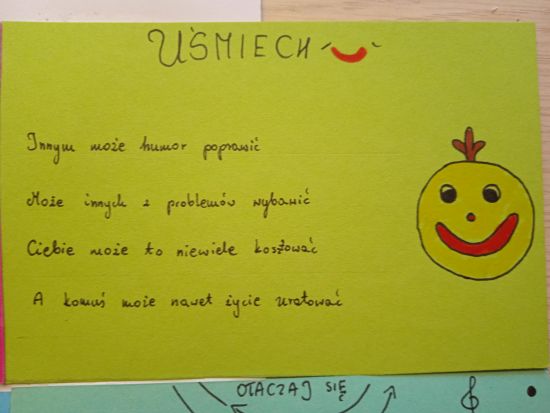 UŚMIECH
Innym może humor poprawić
Może innych z problemów wybawić
Ciebie może to niewiele kosztować
A komuś może nawet życie uratować
OTACZAJ SIĘ